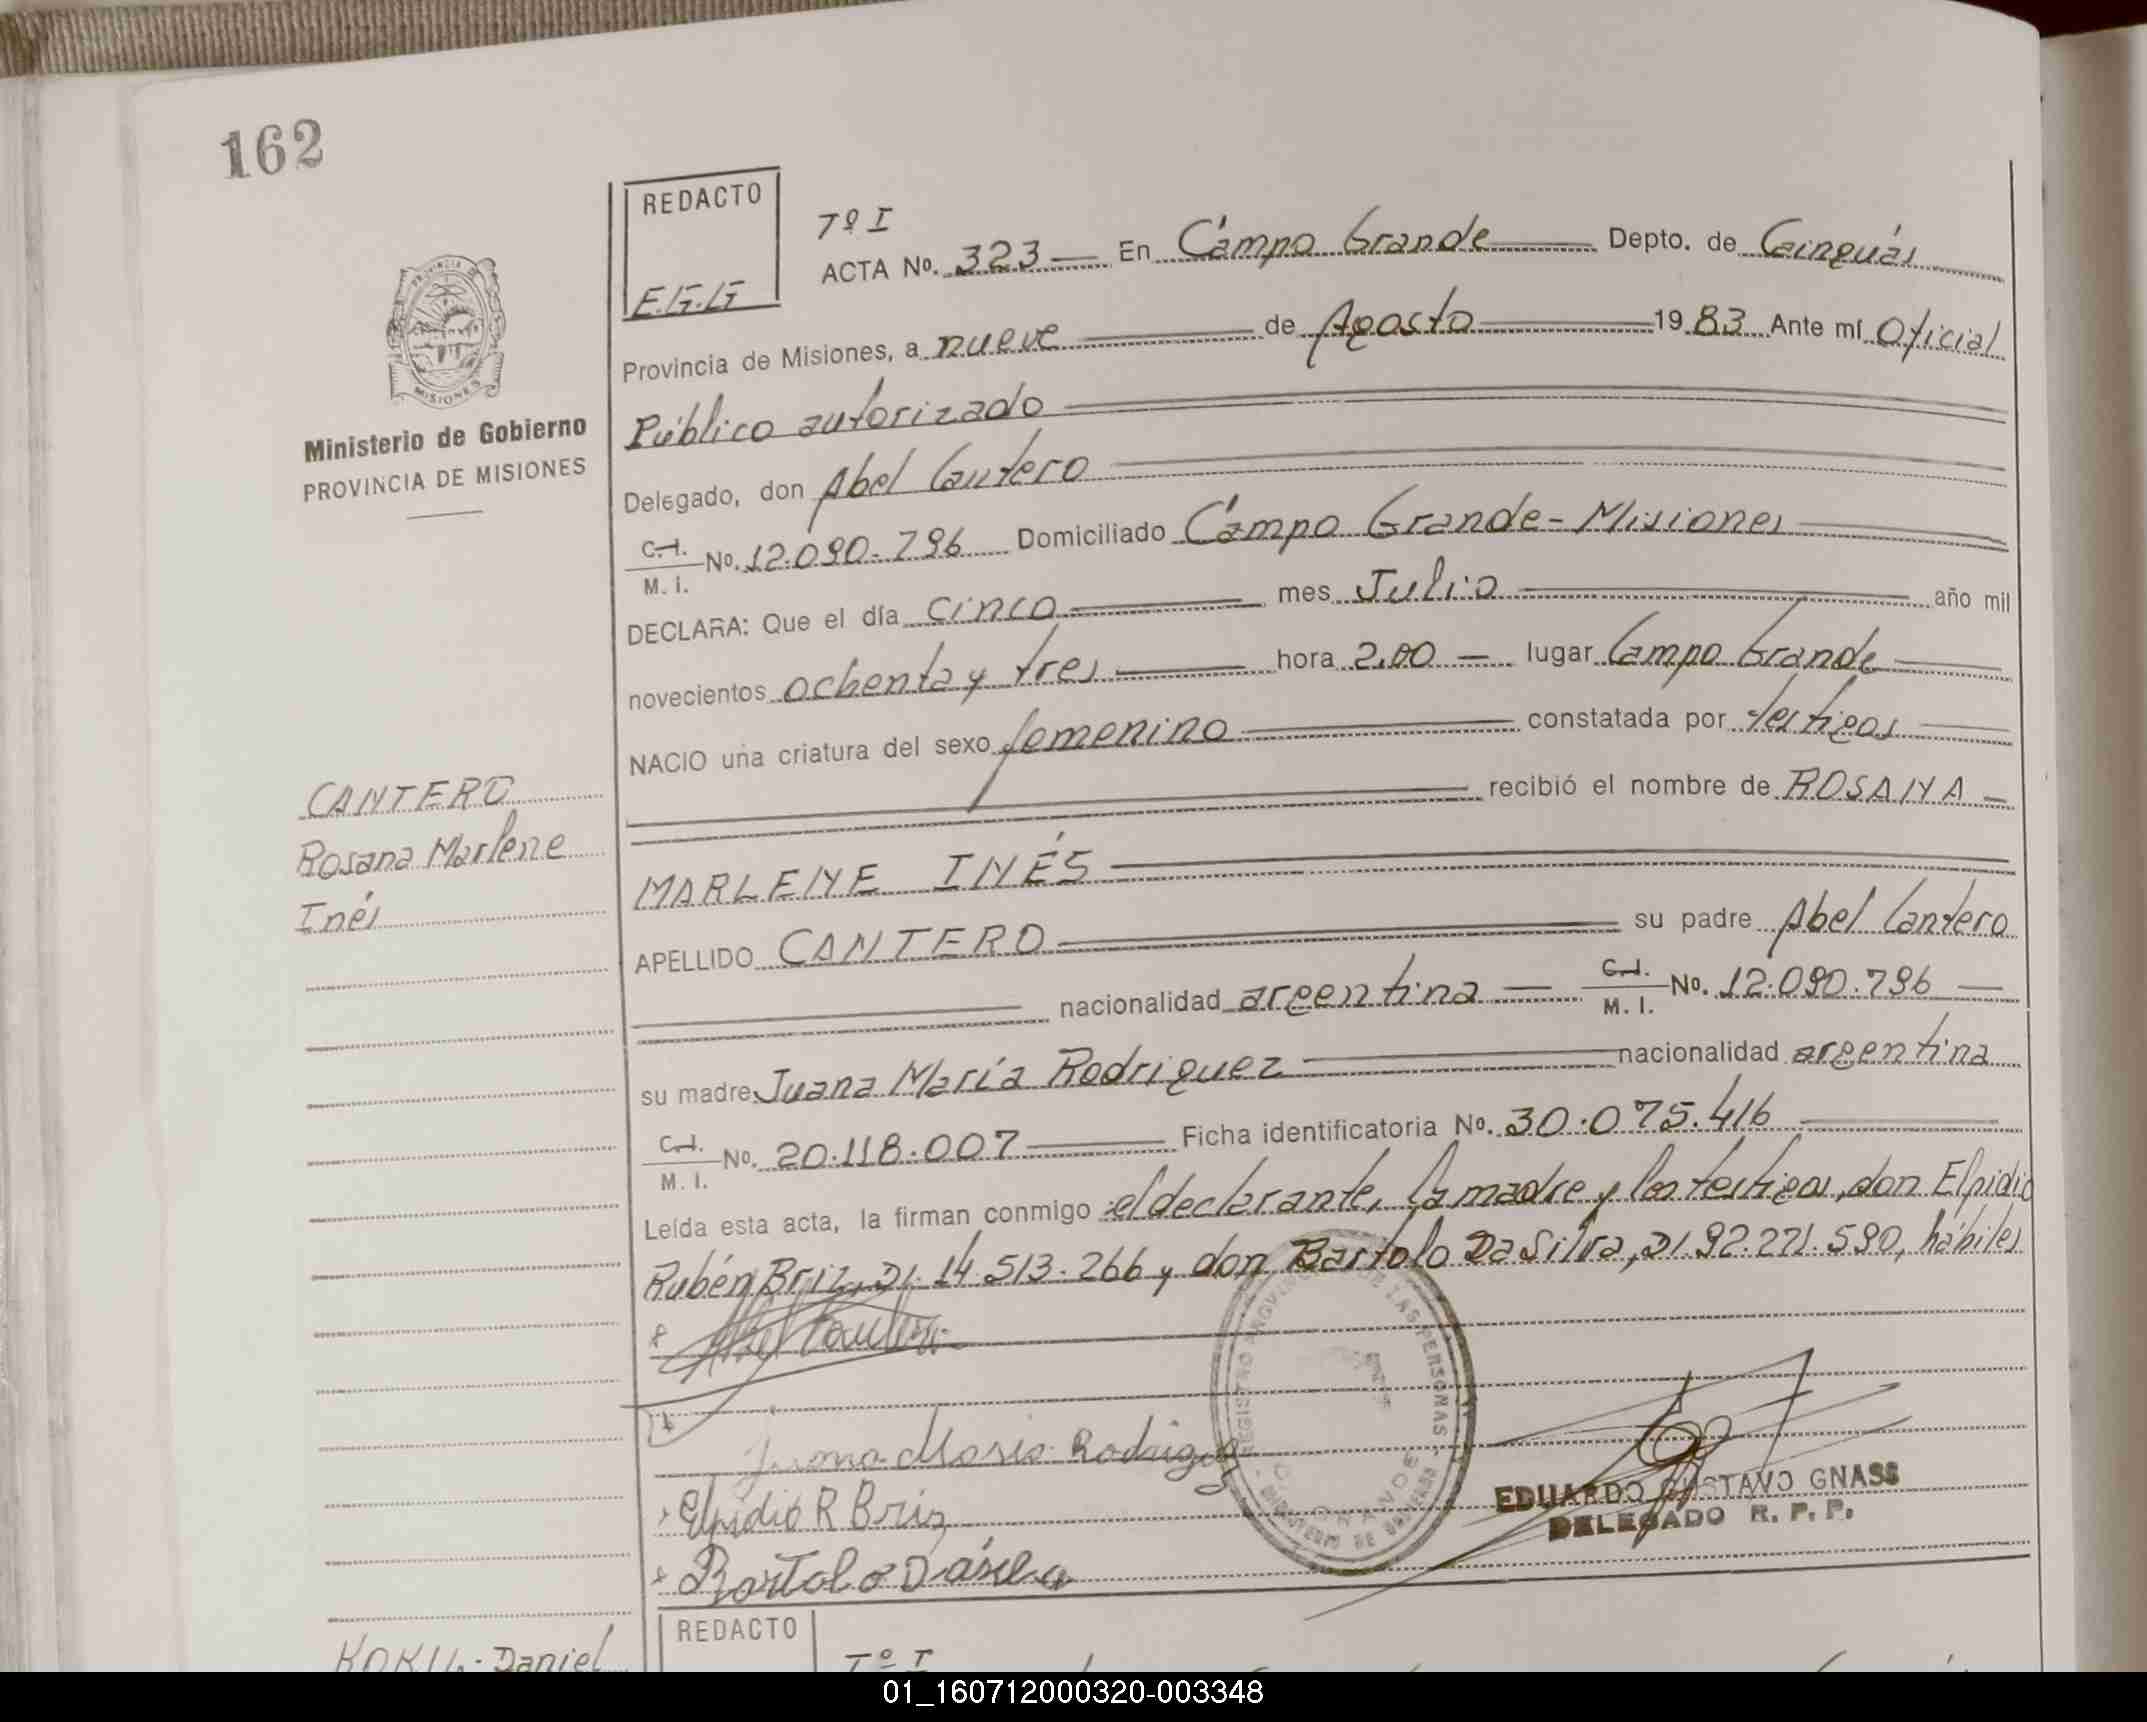 162
REDACTO
E.G.G
Tº I
ACTA No. 323 — En Campo Grande Depto. de Cainguás
Provincia de Misiones, a nueve de Agosto 1983 Ante mí Oficial
Público autorizado
Delegado, don Abel Cantero
C.I. M. I. No. 12.090.796 Domiciliado Campo Grande - Misiones
DECLARA: Que el día cinco mes Julio año mil
novecientos ochenta y tres hora 2.00 — lugar Campo Grande
NACIO una criatura del sexo femenino constatada por testigos
recibió el nombre de ROSANA —
MARLENE INÉS
APELLIDO CANTERO su padre Abel Cantero
nacionalidad argentina — C.I. M. I. No. 12.090.796 —
su madre Juana María Rodriguez nacionalidad argentina
C.I. M. I. No. 20.118.007 Ficha identificatoria No. 30.075.416
Leída esta acta, la firman conmigo el declarante, la madre y los testigos, don Elpidio
Rubén Briz, DI. 14.513.266 y don Bartolo Da Silva, DI 92.271.590, hábiles
Abel Cantero
Juana Maria Rodriguez
Elpidio R Briz
Bartolo Dasilva
REGISTRO DE LAS PERSONAS
MINISTERIO DE
EDUARDO GUSTAVO GNASS
DELEGADO R. P. P.
PROVINCIA DE
MISIONES
Ministerio de Gobierno
PROVINCIA DE MISIONES
CANTERO
Rosana Marlene
Inés
REDACTO
Tº I
Daniel
01_160712000320-003348